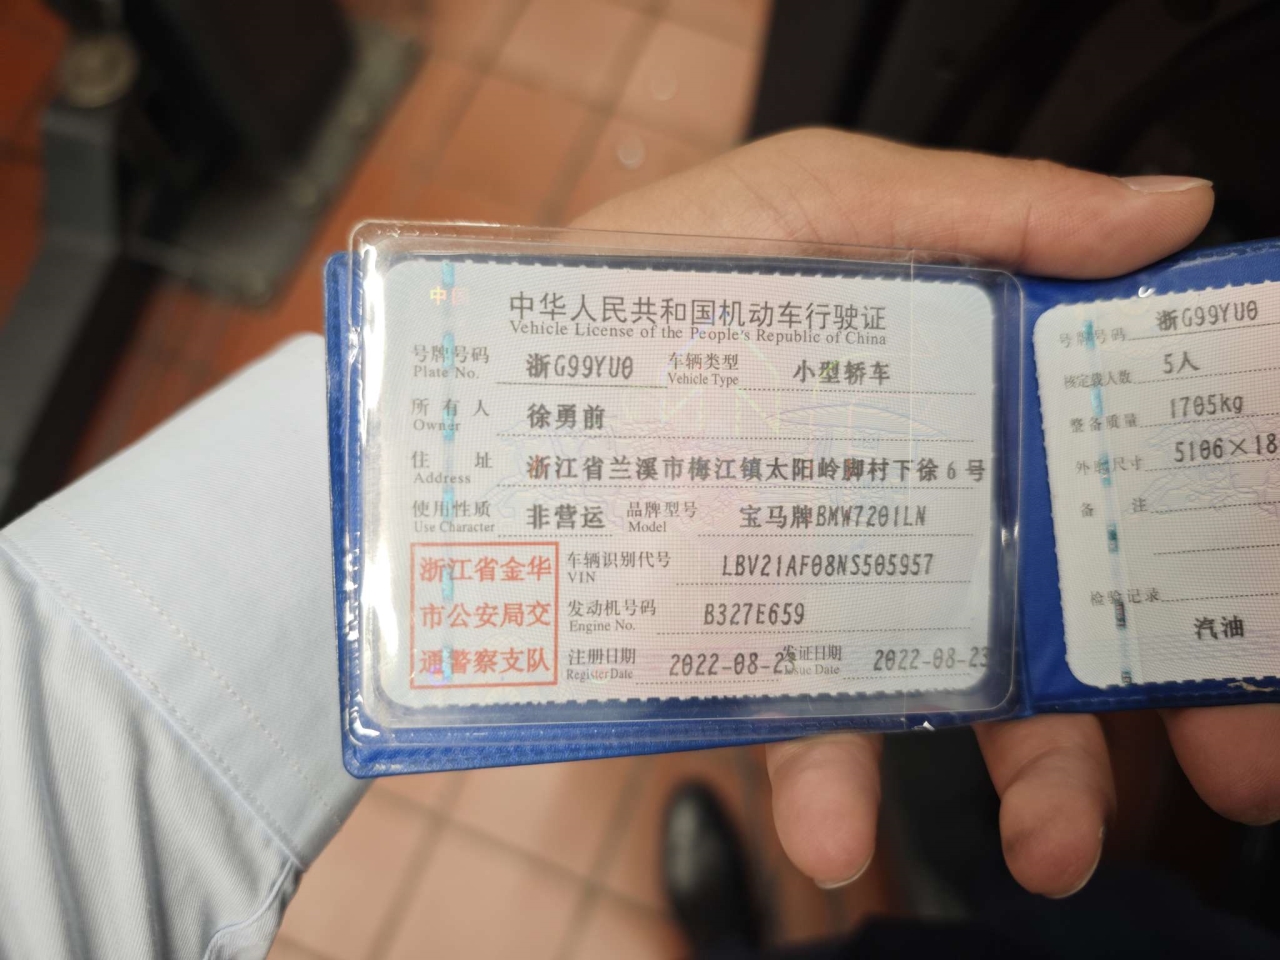 中华人民共和国机动车行驶证
Vehicle License of the People's Republic of China
号牌号码 浙G99YU0 车辆类型 小型轿车
Plate No. Vehicle Type
所有人 徐勇前
Owner
住址 浙江省兰溪市梅江镇太阳岭脚村下徐6号
Address
使用性质 非营运 品牌型号 宝马牌BMW7201LN
Use Character Model
浙江省金华
市公安局交
通警察支队
车辆识别代号 LBV21AF08NS505957
VIN
发动机号码 B327E659
Engine No.
注册日期 2022-08-23 发证日期 2022-08-23
Register Date Issue Date
号牌号码 浙G99YU0
核定载人数 5人
整备质量 1705kg
外廓尺寸 5106×18
备注
检验记录
汽油